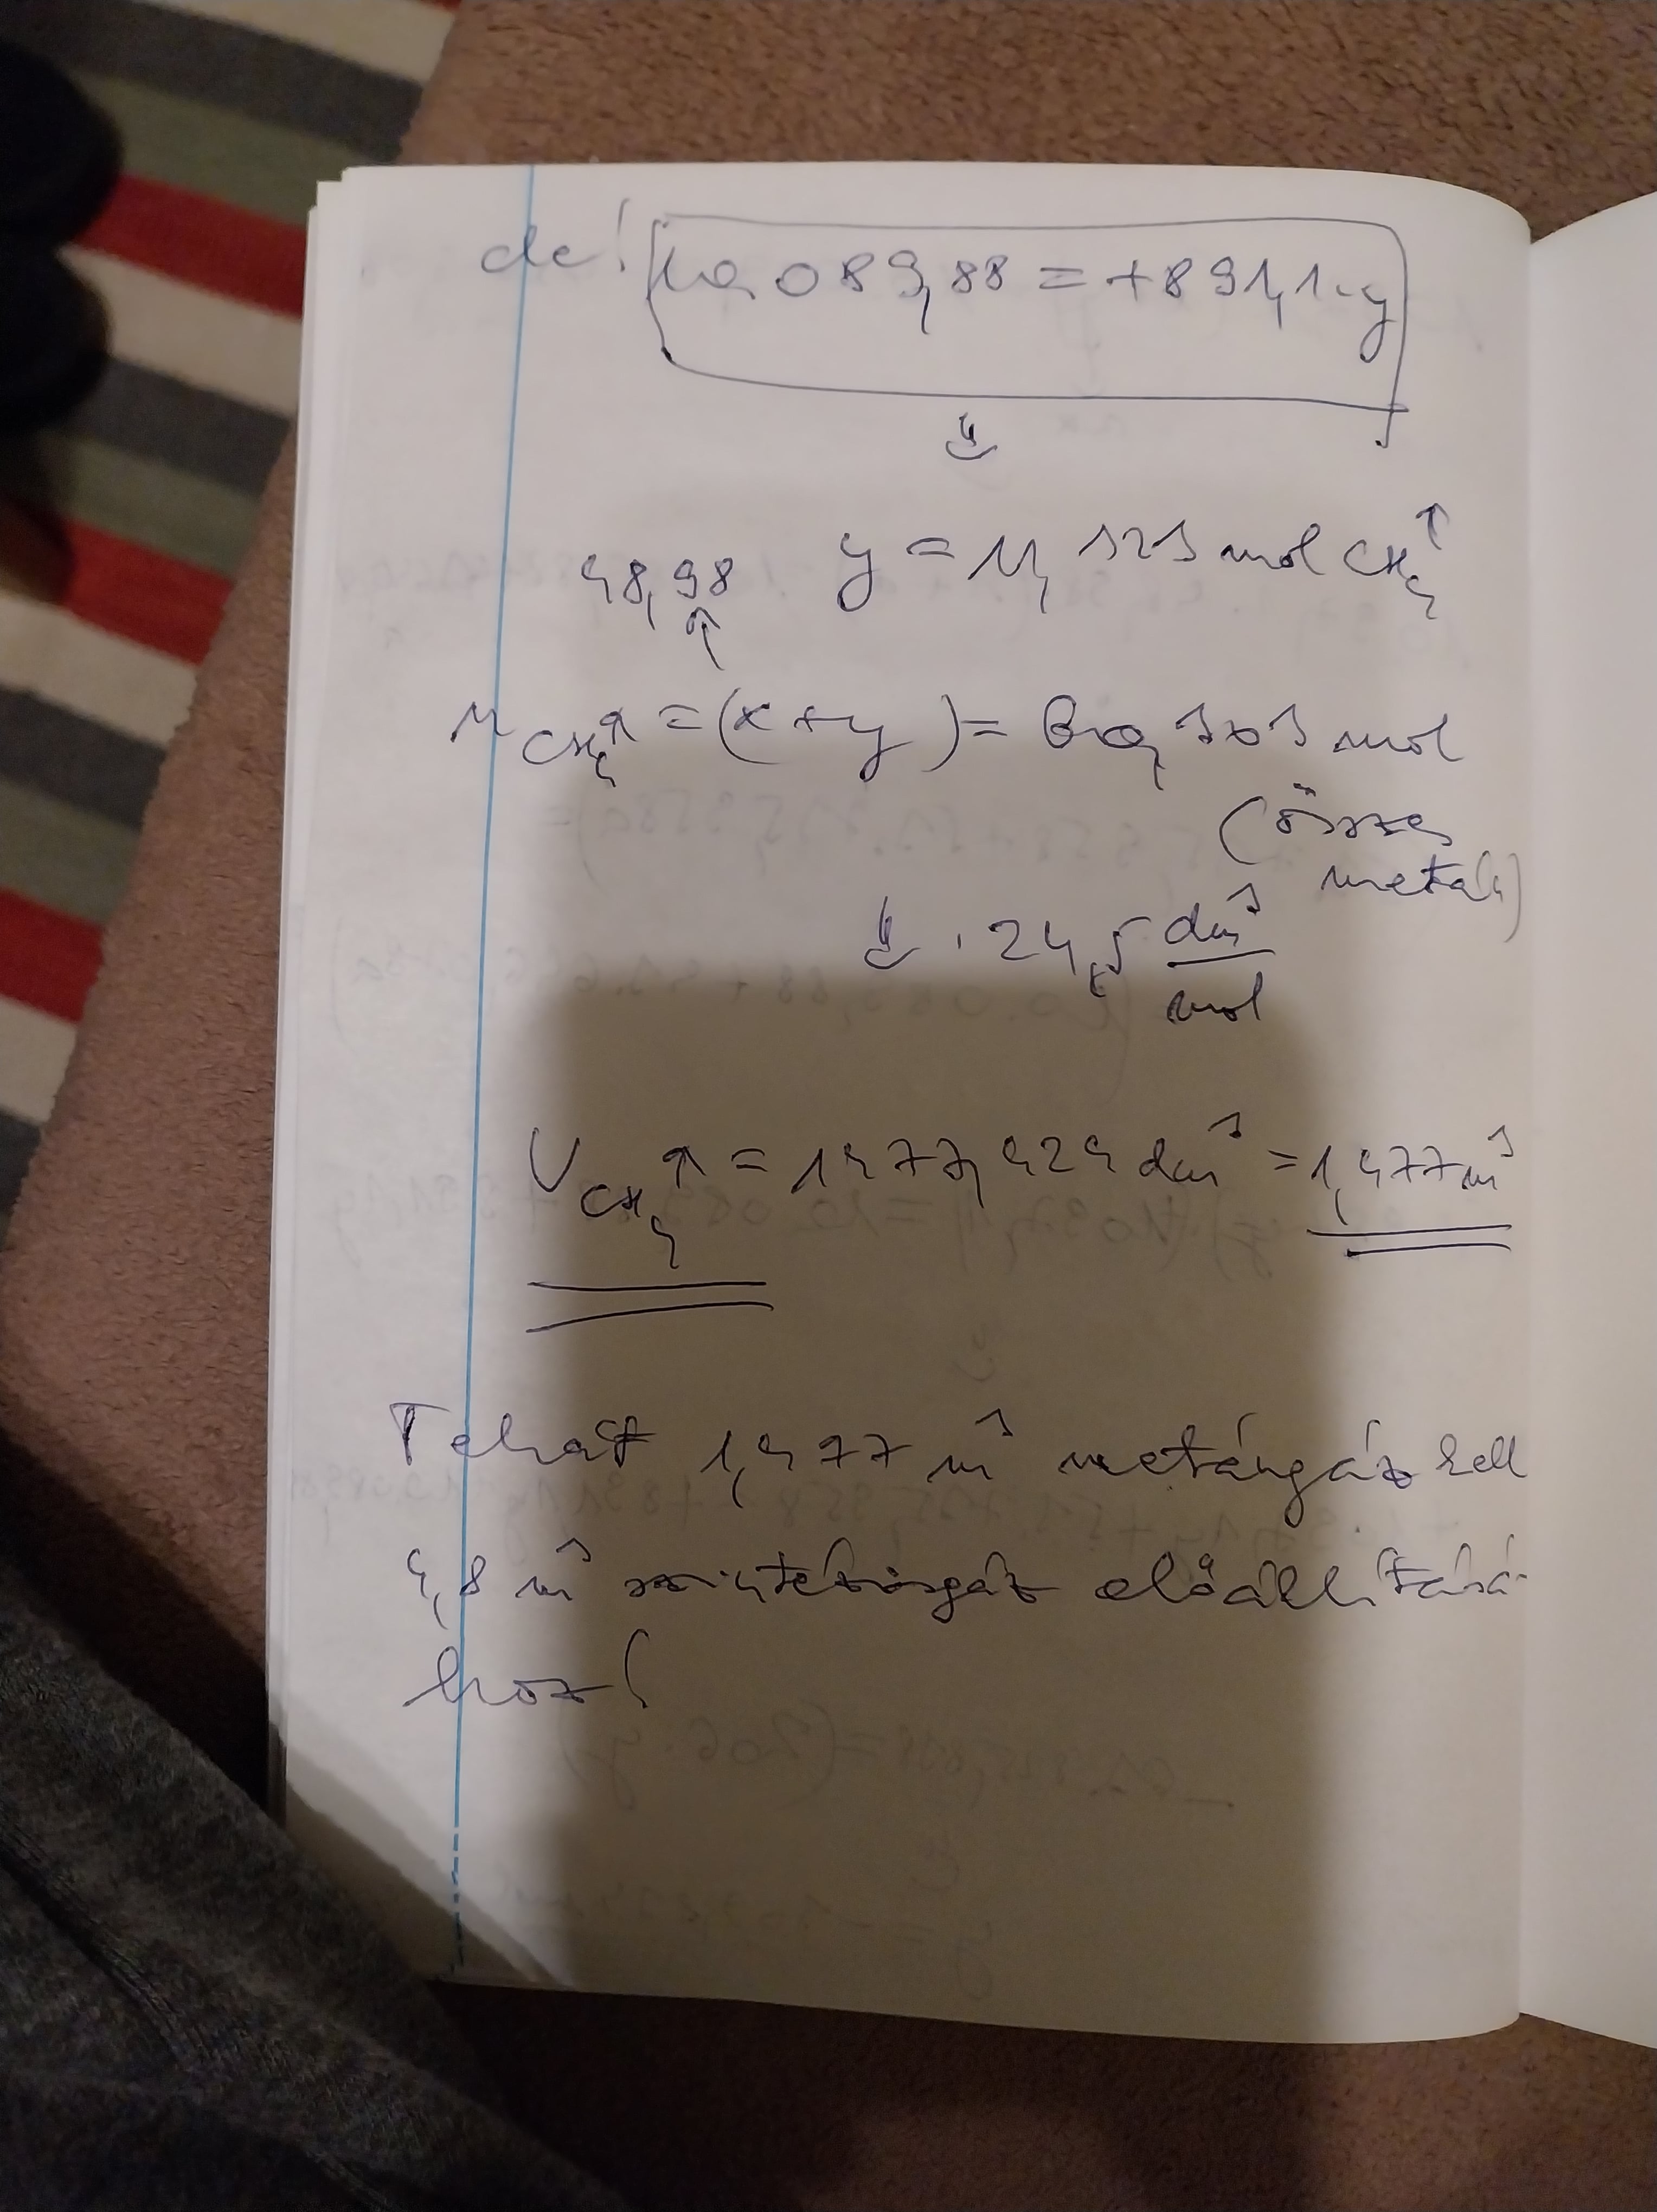 de! 10.089,88 = +891,1·y
⇓
48,98 y = 11,323 mol CH₄↑
↑
n CH₄↑ = (x+y) = 60,303 mol
(összes
metán)
⇓ · 24,5 dm³/mol
V CH₄↑ = 1477,424 dm³ = 1,477 m³
Tehát 1,477 m³ metángáz kell
4,8 m³ szintézisgáz előállításá-
hoz!